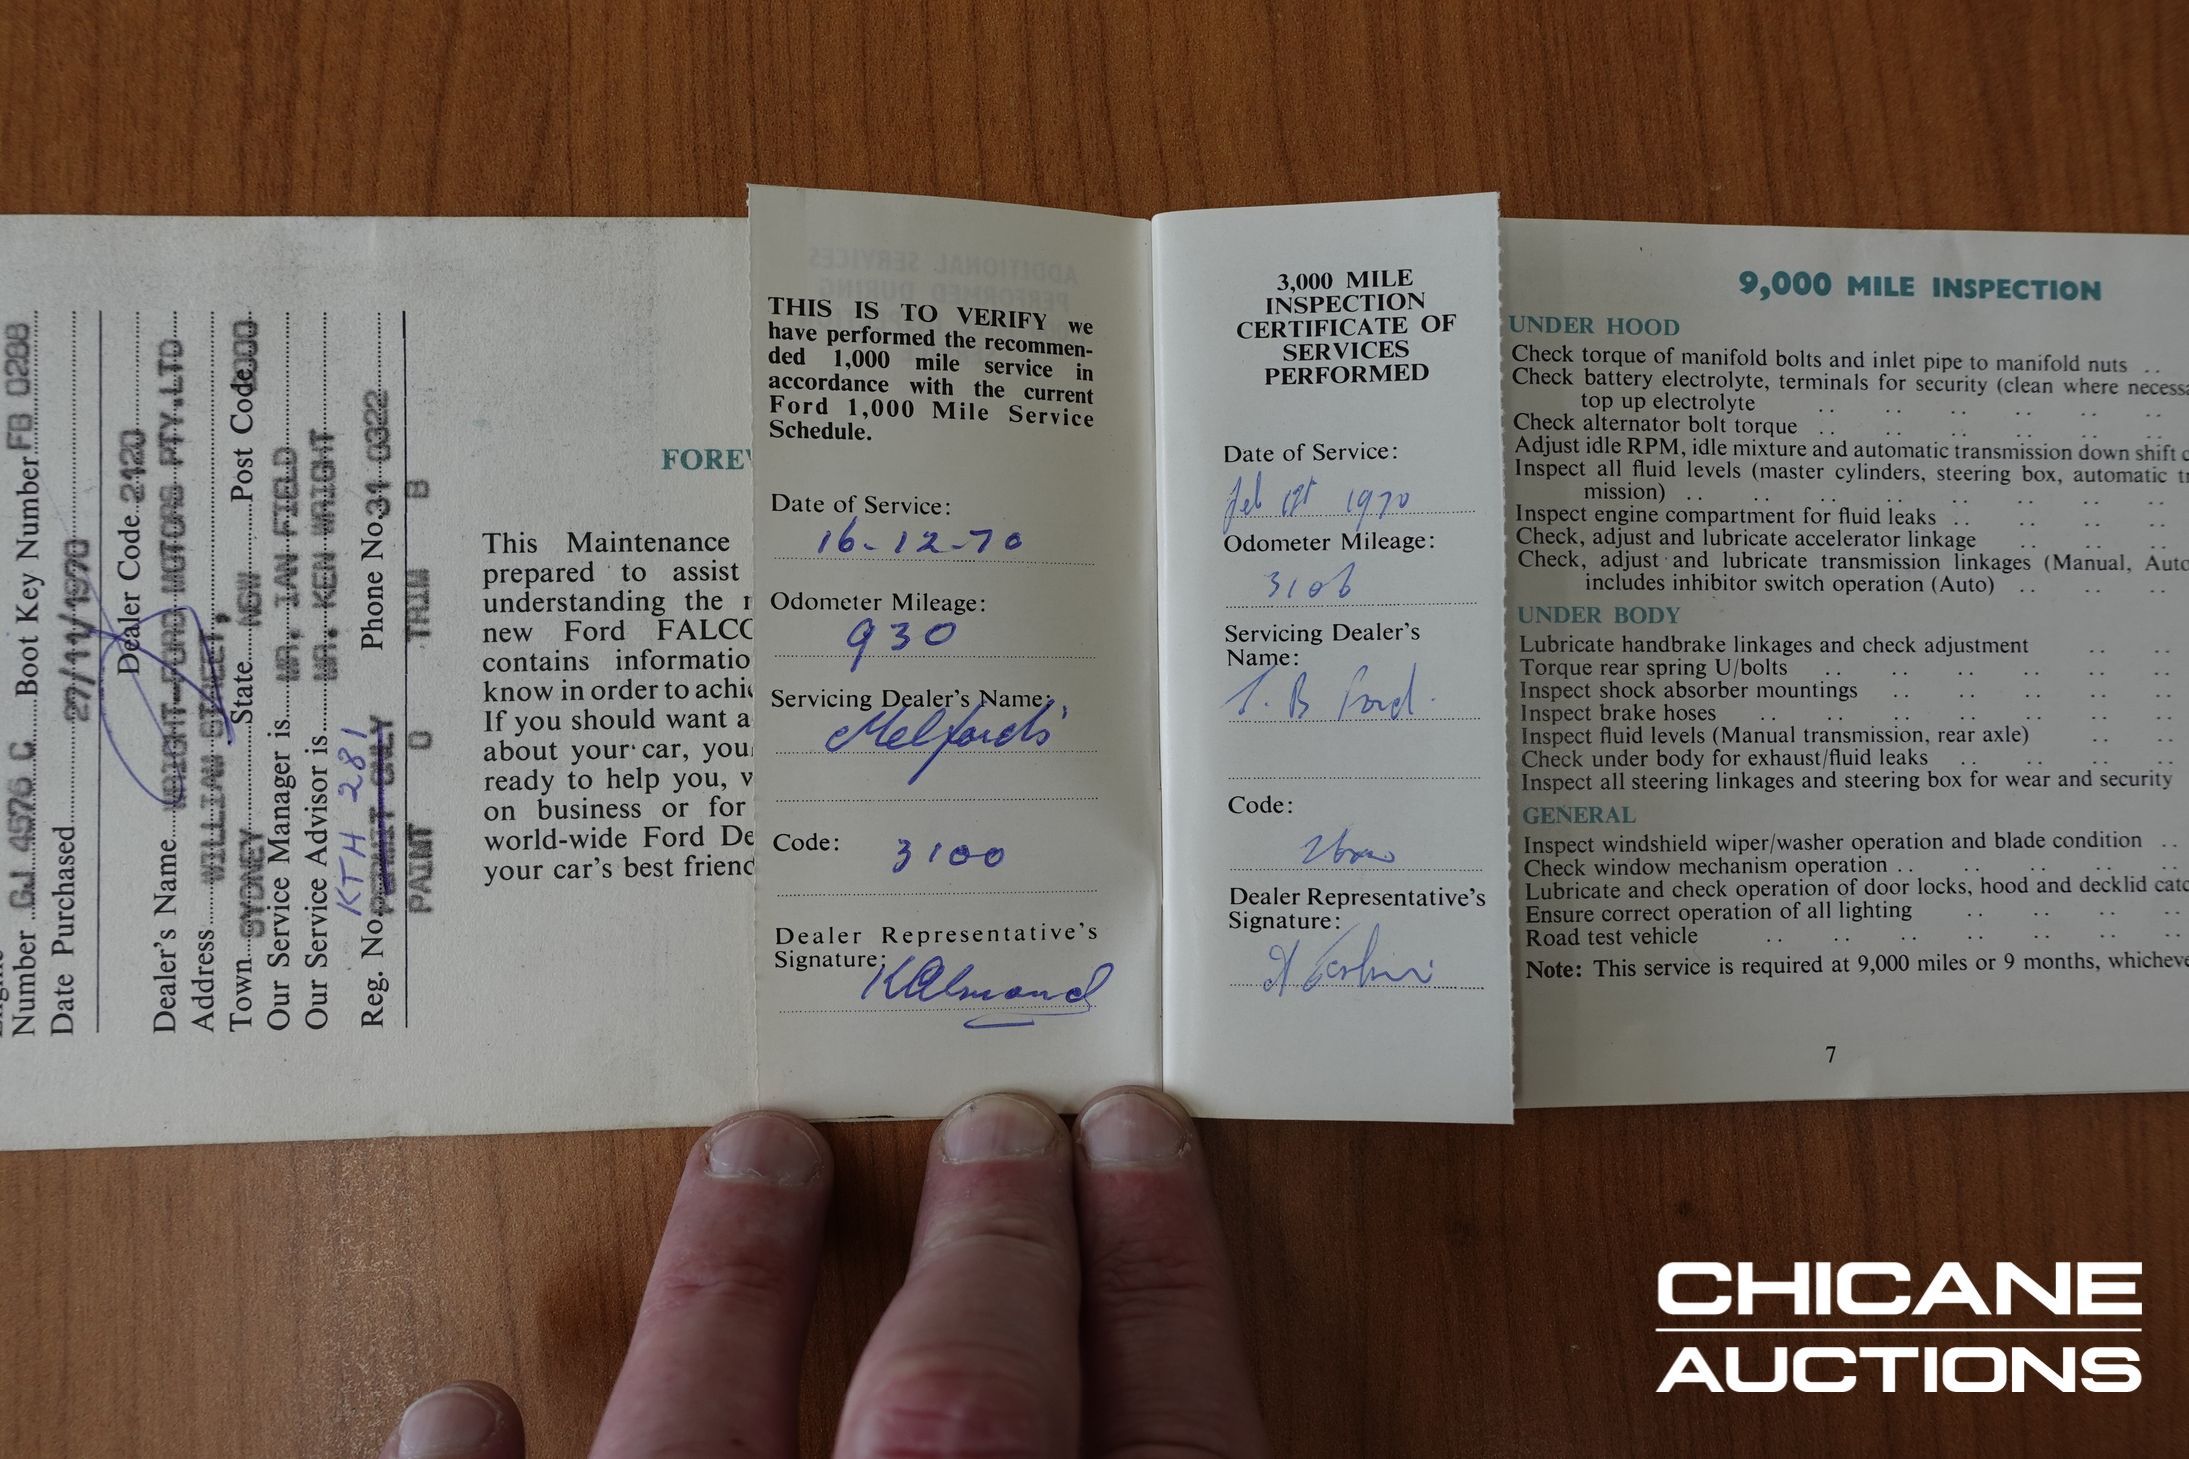 Number GJ 4576 C Boot Key Number FB 0288
Date Purchased 27/11/1970
Dealer Code 2120
Dealer's Name WRIGHT-FORD MOTORS PTY.LTD
Address WILLIAM STREET,
Town SYDNEY State NSW Post Code
Our Service Manager is MR. IAN FIELD
Our Service Advisor is MR. KEN WRIGHT
KTH 281
Reg. No. PERMIT ONLY Phone No. 31 0322
PAINT O TRIM B
FOREW
This Maintenance
prepared to assist
understanding the
new Ford FALCO
contains informatio
know in order to achi
If you should want a
about your car, you
ready to help you, w
on business or for
world-wide Ford De
your car's best friend
THIS IS TO VERIFY we
have performed the recommen-
ded 1,000 mile service in
accordance with the current
Ford 1,000 Mile Service
Schedule.
Date of Service:
16-12-70
Odometer Mileage:
930
Servicing Dealer's Name:
Melford's
Code:
3100
Dealer Representative's
Signature:
3,000 MILE
INSPECTION
CERTIFICATE OF
SERVICES
PERFORMED
Date of Service:
Feb 1970
Odometer Mileage:
3106
Servicing Dealer's
Name:
B Ford.
Code:
Dealer Representative's
Signature:
9,000 MILE INSPECTION
UNDER HOOD
Check torque of manifold bolts and inlet pipe to manifold nuts ..
Check battery electrolyte, terminals for security (clean where necessa
top up electrolyte .. .. .. .. .. ..
Check alternator bolt torque .. .. .. .. .. ..
Adjust idle RPM, idle mixture and automatic transmission down shift c
Inspect all fluid levels (master cylinders, steering box, automatic tr
mission) .. .. .. .. .. .. .. ..
Inspect engine compartment for fluid leaks .. .. .. ..
Check, adjust and lubricate accelerator linkage .. .. ..
Check, adjust and lubricate transmission linkages (Manual, Auto
includes inhibitor switch operation (Auto) .. .. ..
UNDER BODY
Lubricate handbrake linkages and check adjustment .. ..
Torque rear spring U/bolts .. .. .. .. .. ..
Inspect shock absorber mountings .. .. .. .. ..
Inspect brake hoses .. .. .. .. .. .. ..
Inspect fluid levels (Manual transmission, rear axle) .. ..
Check under body for exhaust/fluid leaks .. .. .. ..
Inspect all steering linkages and steering box for wear and security
GENERAL
Inspect windshield wiper/washer operation and blade condition ..
Check window mechanism operation .. .. .. .. ..
Lubricate and check operation of door locks, hood and decklid catc
Ensure correct operation of all lighting .. .. .. ..
Road test vehicle .. .. .. .. .. .. ..
Note: This service is required at 9,000 miles or 9 months, whicheve
7
CHICANE
AUCTIONS